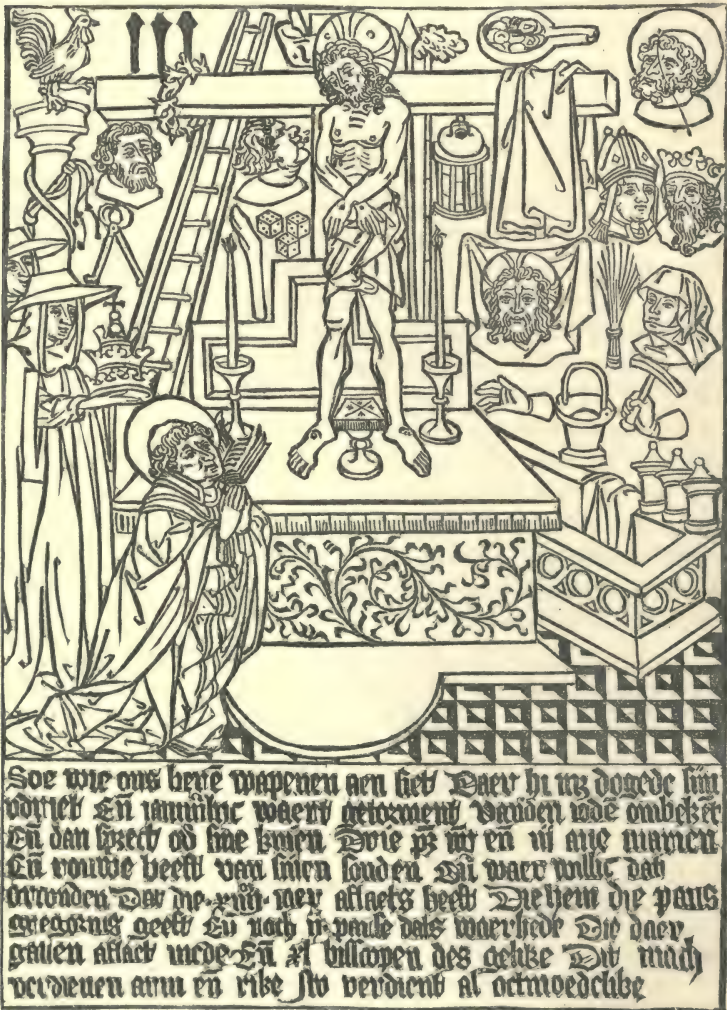 Soe wie ons heren wapenen aen siet Daer hi mz dogede sijn
verdriet Eñ iamerlic waert getorment Vanden ioden onbekēt
Eñ dan spreect op sine knien Drie pr nr en iij aue marien
Eñ rouwe heeft van sinen sonden Eñ waer willic dat
orconden Dat die xiiij iaer aflaets heeft Die hem die paus
gregorius geeft Eñ noch ij pause dats waerhede Die daer
gauen aflaet mede Eñ xl bisscopen des gelike Dit mach
verdienen arm en rike Nv verdient al oetmoedelike